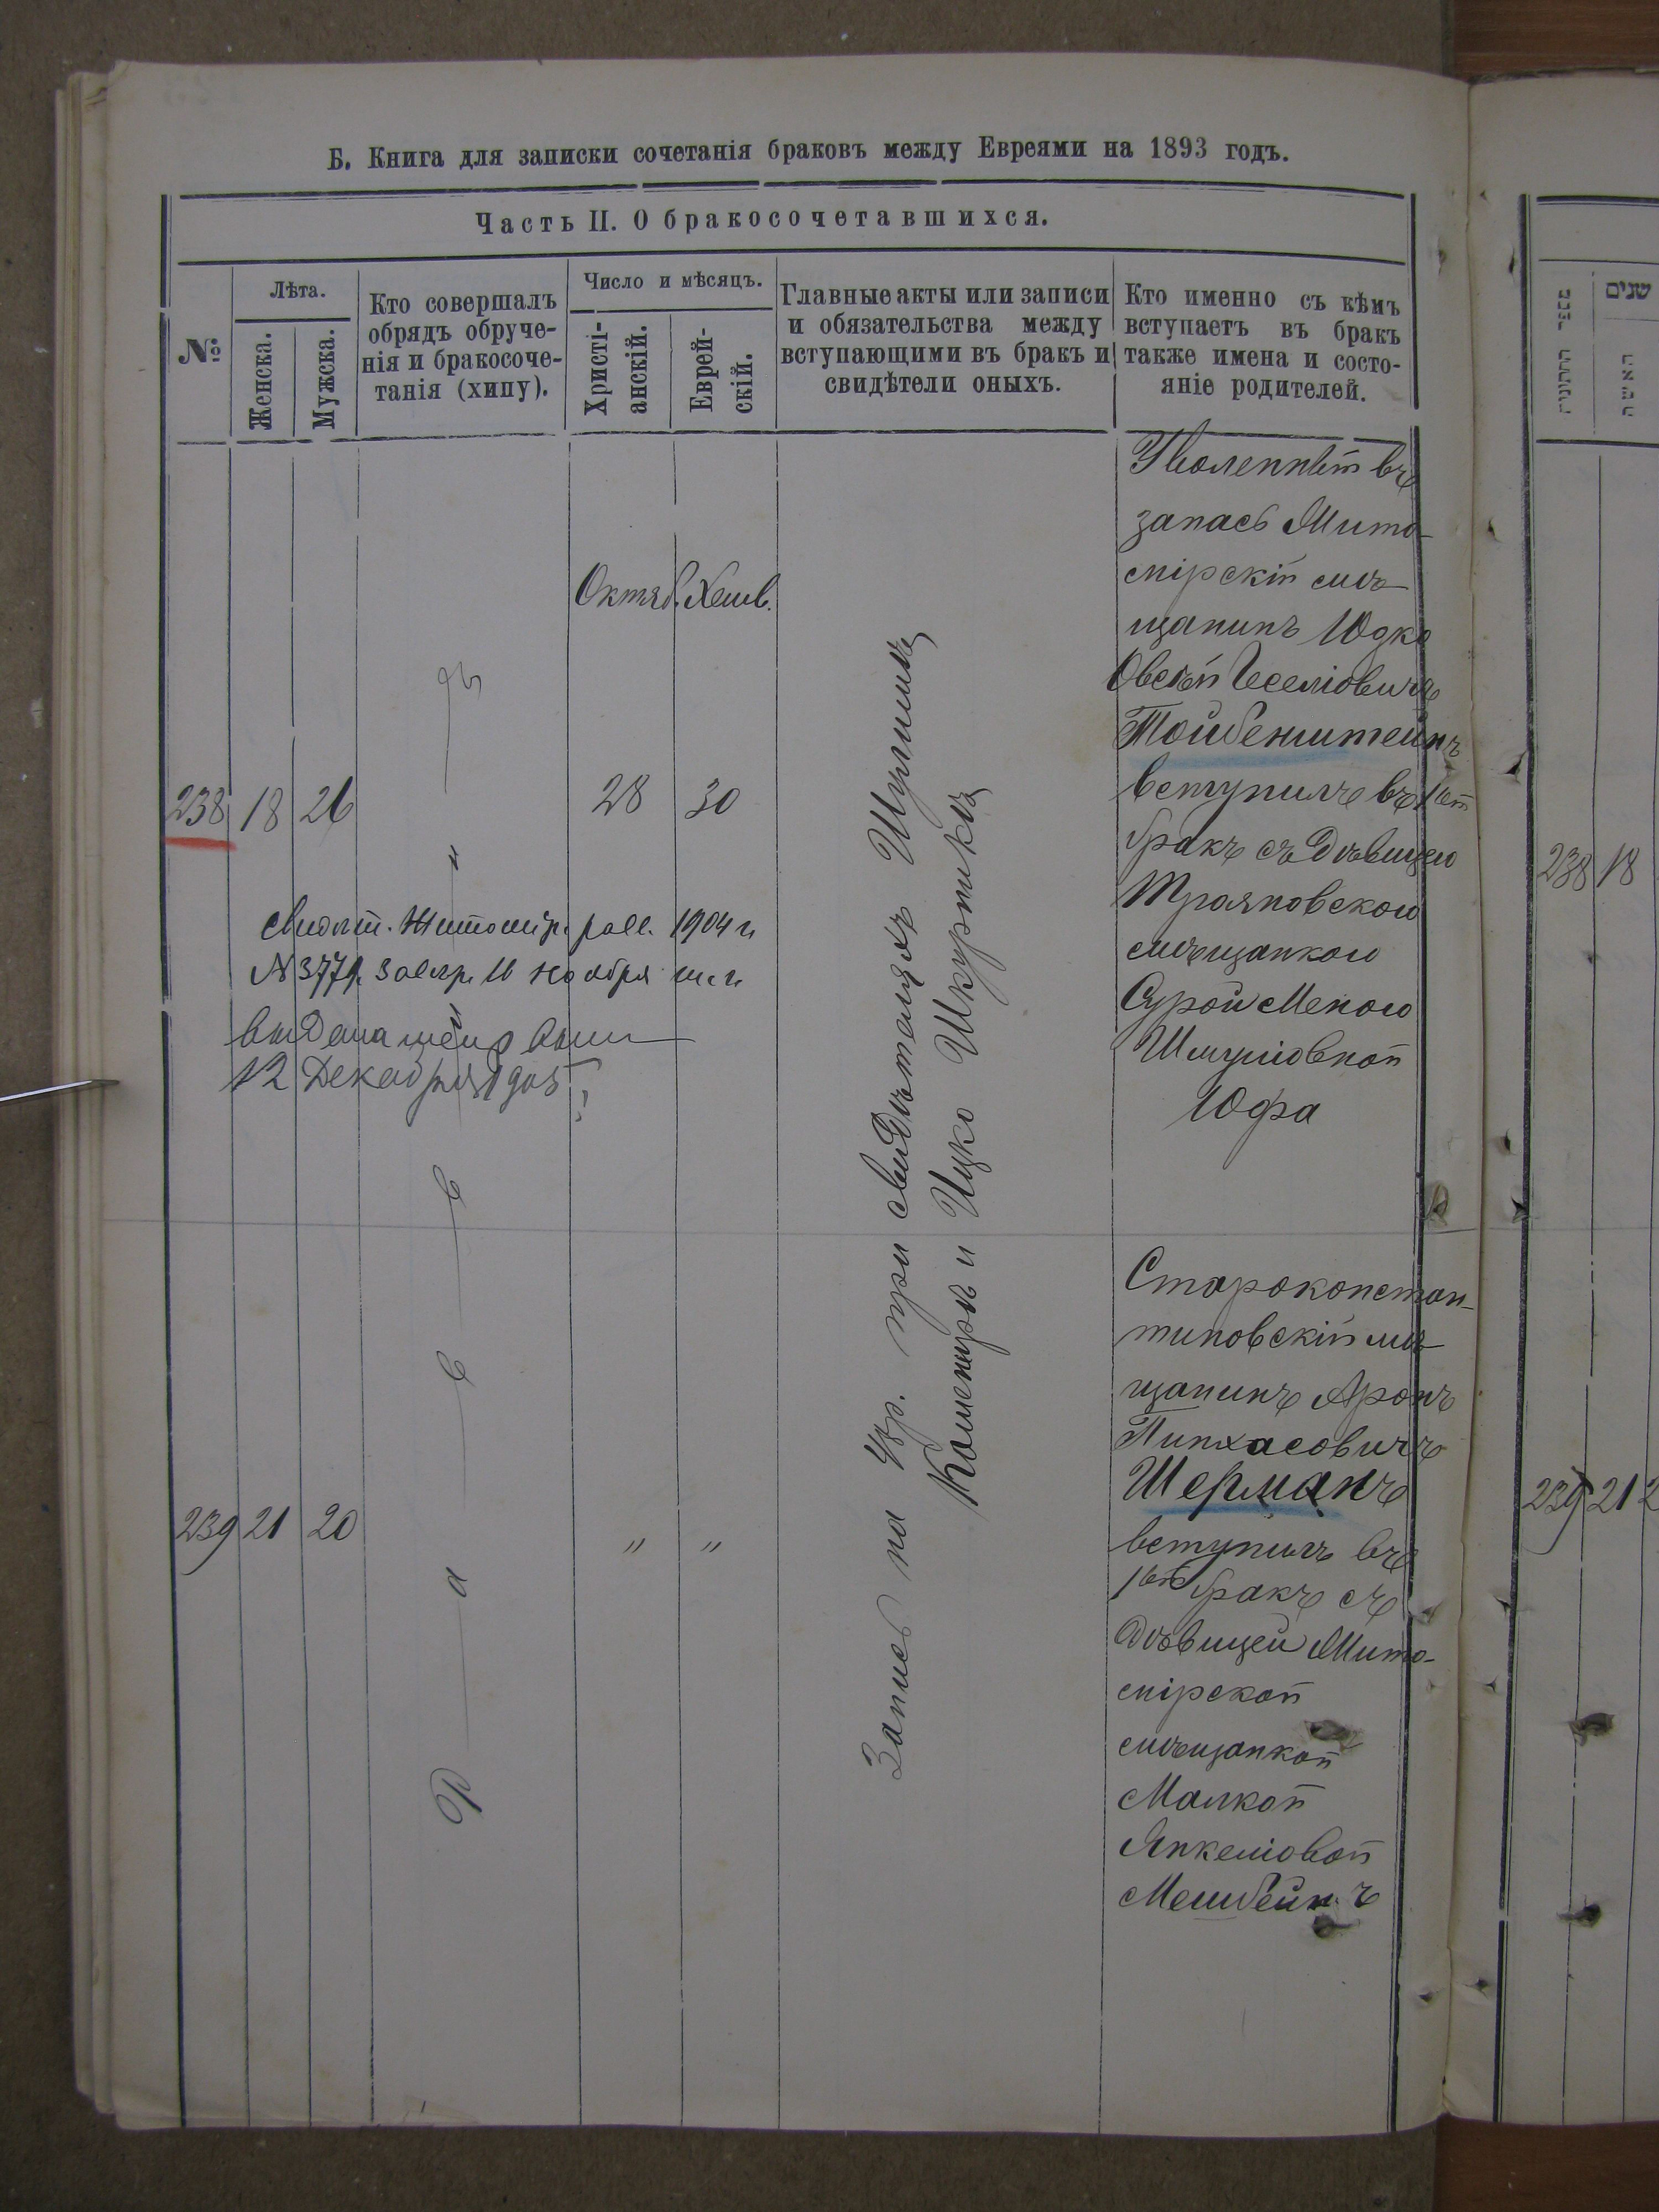 Б. Книга для записки сочетанія браковъ между Евреями на 1893 годъ.
Часть II. О бракосочетавшихся.
№
Лѣта.
Женска.
Мужска.
Кто совершалъ
обрядъ обруче-
нія и бракосоче-
танія (хипу).
Число и мѣсяцъ.
Христі-
анскій.
Еврей-
скій.
Главные акты или записи
и обязательства между
вступающими въ бракъ и
свидѣтели оныхъ.
Кто именно съ кѣмъ
вступаетъ въ бракъ
также имена и состо-
яніе родителей.
238 18 26
Октяб. Хешв.
28 30
Запись на 48р. при свидѣтеляхъ
и Ицко
Уволенный въ
запасъ Жито-
мірскій мѣ-
щанинъ Юдко
Овсѣй Іоселіовичъ
Тойбенштейнъ
вступилъ въ 1ый
бракъ съ дѣвицею
Трояновскою
мѣщанкою
Сурой Меною
Шмуліовной
Юфа
Свидѣт. Житомір. равв. 1904 г.
№ 377
выдана
12 Декабря 1905
Р а в в и н ъ
239 21 20
" "
Староконстан-
тиновскій мѣ-
щанинъ Аронъ
Пинхасовичъ
Шерманъ
вступилъ въ
1ый бракъ съ
дѣвицей Жито-
мірской
мѣщанкой
Малкой
Янкеліовой
Мешбейнъ
מספר החתונות
שנים
האישה
238 18
239 21 2